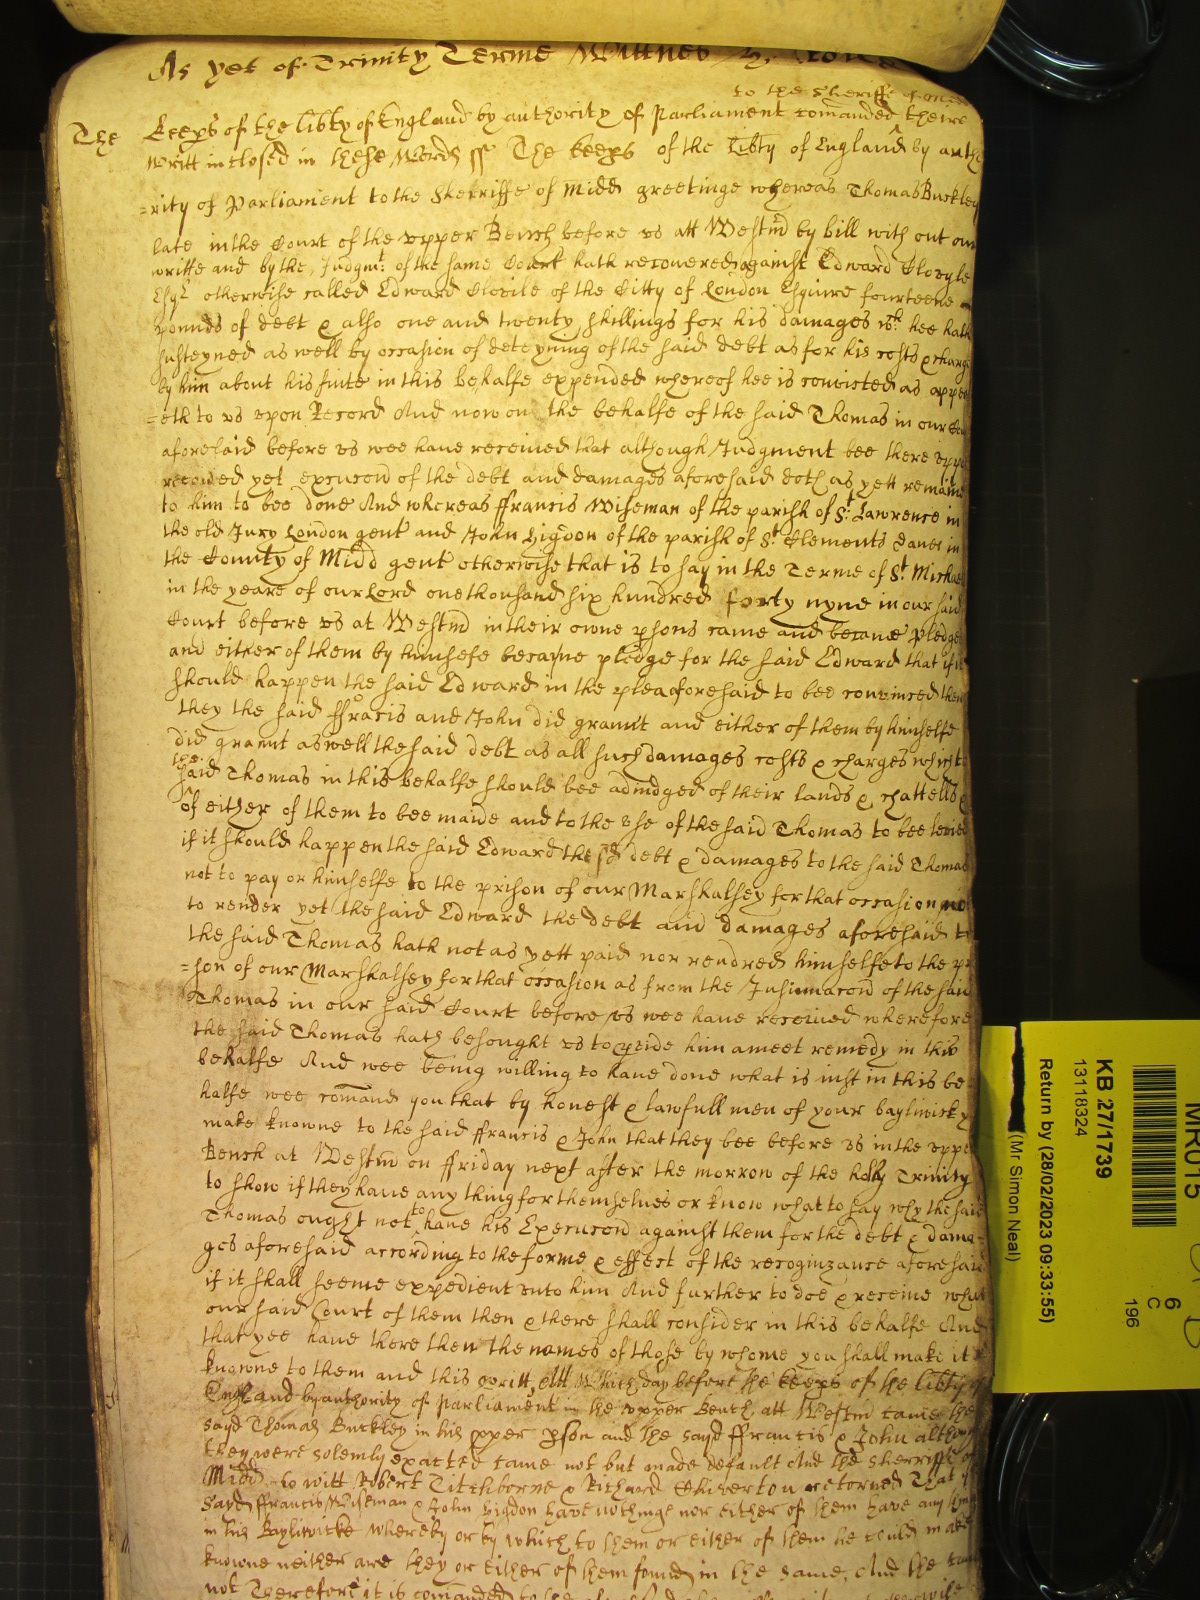 As yet of Trinity Terme Wittnes H. Rolle
to the Sheriffe of
The Keeps of the libty of England by authority of Parliament comanded theire
writt inclosed in these Words ss The keeps of the Libty of England by autho
=rity of Parliament to the Sherriffe of Midd greetinge whereas Thomas Buckley
late in the Court of the vpper Bench before vs att Westmd by bill with out our
writte and by the Judgmt. of the same Court hath recovered against Edward Clovyle
Esqr otherwise called Edward Clovile of the Citty of London Esquire fourteene
pounds of debt & also one and twenty shillings for his damages wch. hee hath
susteyned as well by occasion of deteyning of the said debt as for his costs & charge
by him about his suite in this behalfe expended whereof hee is convicted as appe
=eth to vs vpon Record And now on the behalfe of the said Thomas in our Cou
aforesaid before vs wee have received that although Judgment bee there vppo
recoved yet execucon of the debt and damages aforesaid doth as yett remaine
to him to bee done And whereas ffrancis Wiseman of the parish of St. Lawrence in
the old Jury London gent and John Higdon of the parish of St Clements Danes in
the County of Midd gent otherwise that is to say in the Terme of St Michael
in the yeare of our Lord one thousand six hundred forty nyne in our said
Court before vs at Westmd in their owne psons came and became Pledge
and either of them by himselfe became pledge for the said Edward that if it
should happen the said Edward in the plea aforesaid to bee convinced then
they the said ffracis and John did graunt and either of them by himselfe
did graunt as well the said debt as all such damages costs & charges which
the said Thomas in this behalfe should bee adiudged of their lands & chattells &
of either of them to bee maide and to the vse of the said Thomas to bee levied
if it should happen the said Edward the sd debt & damages to the said Thomas
not to pay or himselfe to the prison of our Marshalsey for that occasion not
to render yet the said Edward the debt and damages aforesaid to
the said Thomas hath not as yett paid nor rendred himselfe to the pri
=son of our Marshalsey for that occasion as from the Insinuacon of the said
Thomas in our said Court before vs wee have received wherefore
the said Thomas hath besought vs to pvide him a meet remedy in this
behalfe And wee being willing to have done what is iust in this be
halfe wee comand you that by honest & lawfull men of your bayliwicke
make knowne to the said ffrancis & John that they bee before vs in the vppe
Bench at Westmd on ffriday next after the morrow of the holy Trinity
to show if they have any thing for themselves or know what to say why the said
Thomas ought not to have his Execucon against them for the debt & dama=
ges aforesaid according to the forme & effect of the recognizance aforesaid
if it shall seeme expedient unto him And further to doe & receive what
our said Court of them then & there shall consider in this behalfe And
that yee have there then the names of those by whome you shall make it
knowne to them and this writt, Att Which day before the keeps of the libty of
England by authority of Parliament in the vpper Bench att Westmd came the
sayd Thomas Buckley in his pper pson and the sayd ffrancis & John althou
they were solemly exacted came not but made default And the Sherriffe of
Midd to witt Robert Titchborne & Richard Chiverton retorned That
sayd ffrancis Wiseman & John Higdon have nothinge nor either of them have any thin
in his Bayliwicke whereby or by which to them or either of them he could make
knowne neither are they or either of them found in the same, And the
not Therefore it is comanded to the
MR015
KB 27/1739
13118324
Return by (28/02/2023 09:33:55)
(Mr Simon Neal)
6
C
196